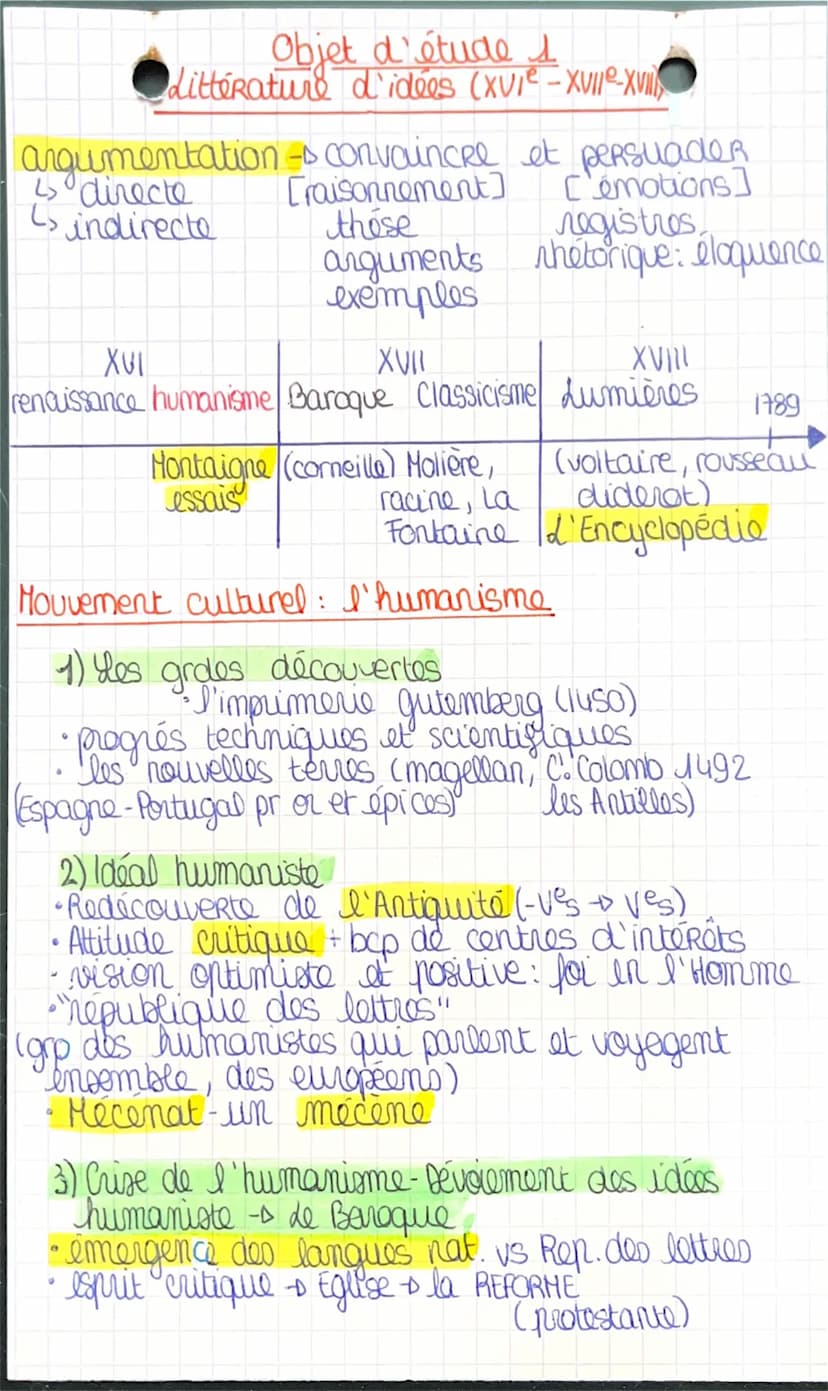 Objet d'étude 1
Littérature d'idées (XVIe - XVIIe-XVIII)
argumentation → convaincre et persuader
↳ directe [raisonnement] [émotions]
↳ indirecte thése registres
arguments rhétorique: éloquence
exemples
XVI XVII XVIII
renaissance humanisme Baroque Classicisme Lumières 1789
Montaigne (corneille) Molière, (voltaire, rousseau
essais racine, La diderot)
Fontaine L'Encyclopédie
Mouvement culturel : l'humanisme
1) Les grdes découvertes
• l'imprimerie gutemberg (1450)
• progrés techniques et scientifiques
• les nouvelles terres (magellan, C. Colomb 1492
(Espagne - Portugal pr or et épices) les Antilles)
2) Idéal humaniste
• Redécouverte de l'Antiquité (-Ves → Ves)
• Attitude critique + bcp de centres d'intérêts
- vision optimiste et positive : foi en l'Homme
• "république des lettres"
(grp des humanistes qui parlent et voyagent
ensemble, des européens)
• Mécénat - un mécène
3) Crise de l'humanisme - Dévoiement des idées
humaniste → le Baroque
• émergence des langues nat. vs Rep. des lettres
• esprit critique → Eglise → la REFORME
(protestante)